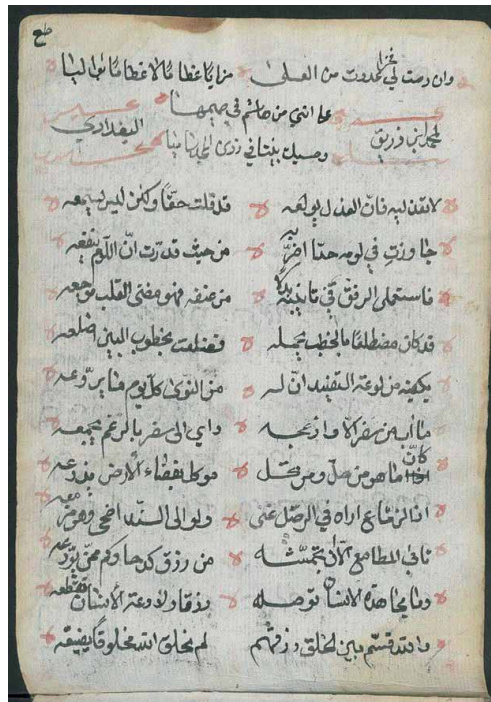 وان رمت لي فخرا عددت من العلى مزايا عظاما لا عظاما بواليا
على انني من هاشم في صميمها
لمحمد ابن زريق البغدادي
وحسبك بيتا في ذرى المجد
لا تعذليه فانّ العذل يولعه قد قلت حقّا ولكن ليس يسمعه
جاوزتِ في لومه حدّا اضرّ به من حيث قدّرت انّ اللّوم ينفعه
فاستعملي الرفق في تانيبه بدلا من عنفه فهو مضنى القلب موجعه
قد كان مضطلعا بالخطب يحمله فضلعت بخطوب البين اضلعه
يكفيه من لوعة التفنيد انّ له من النّوى كلّ يوم ما يروّعه
ما آب من سفر الّا وازعجه رأي الى سفر بالرّغم يجمعه
كانّما هو من حلّ ومرتحل موكل بفضاء الأرض يذرعه
اذا الزماع اراه في الرحيل غنى ولو الى السّند اضحى وهو يزمعه
تابى المطامع الّا ان تجشّمه من رزق كدحا وكم ممّن يودّعه
وما مجاهدة الانسان توصله رزقا ولا دعة الأنسان تقطعه
والله قسّم بين الخلق رزقهم لم يخلق الله مخلوقا يضيّعه